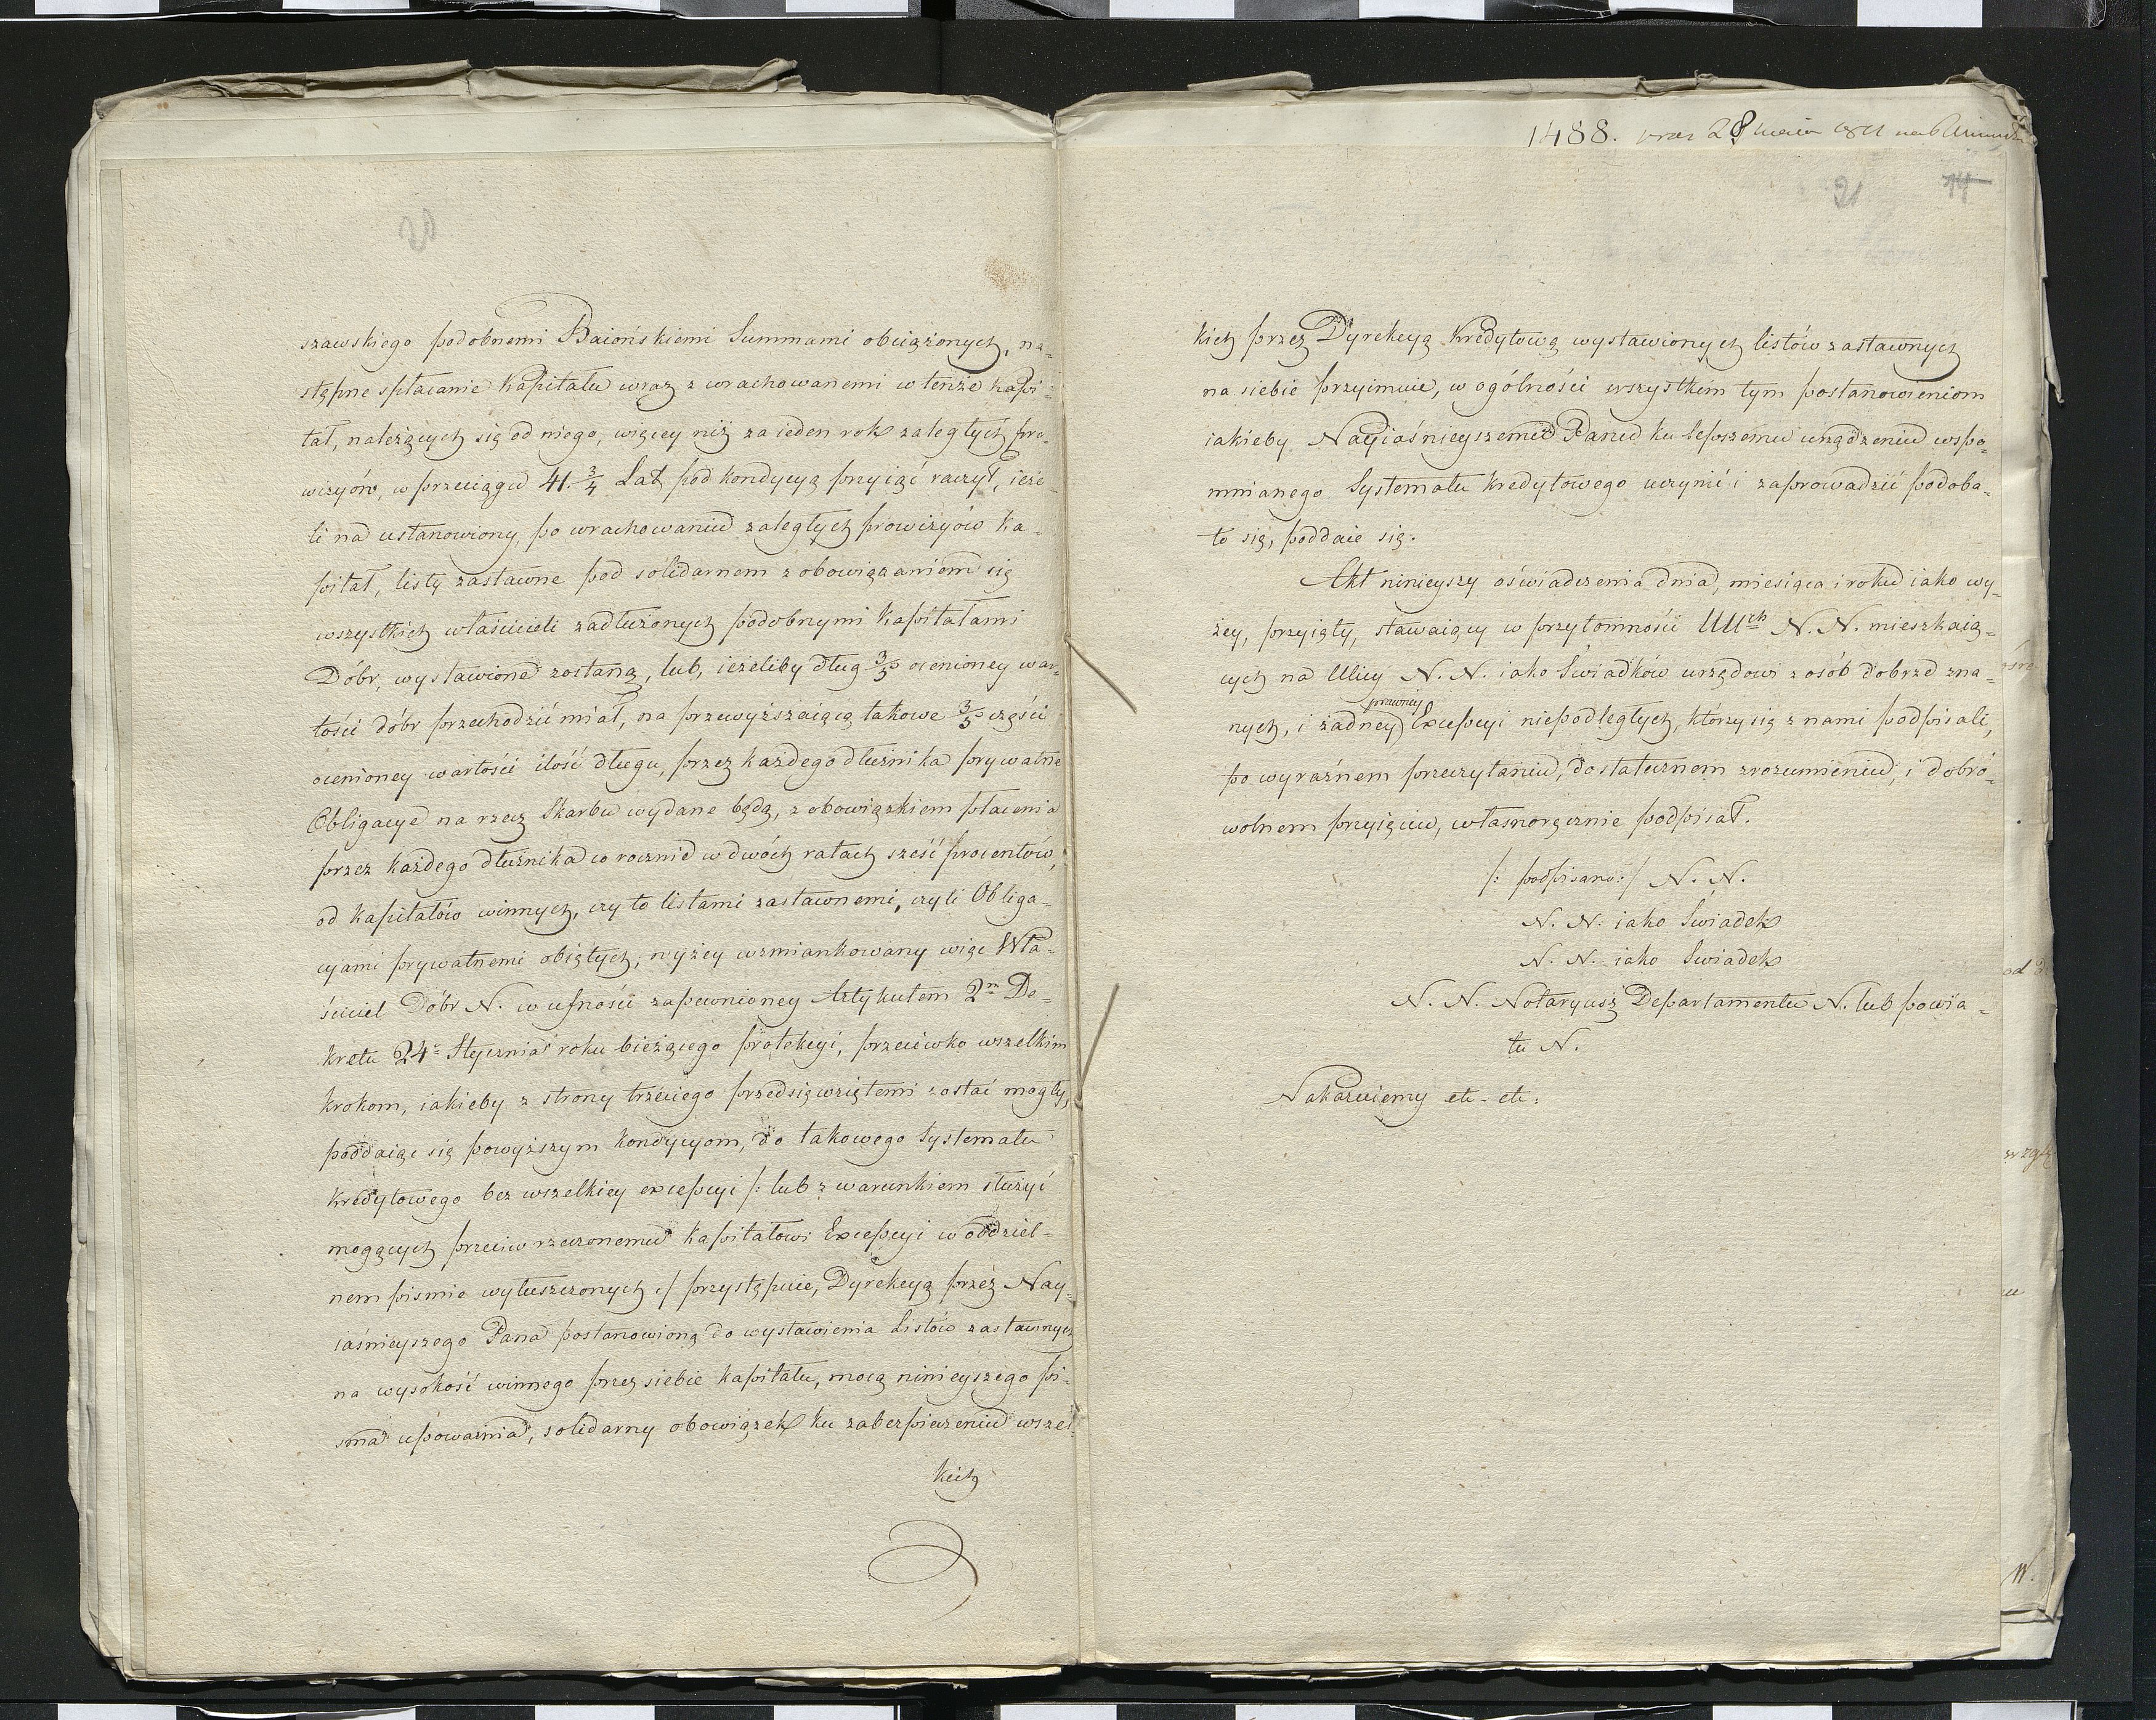 20
szawskiego podobnemi Baiońskiemi Summami obciążonych, na-
stępne spłacanie Kapitału wraz z wrachowanemi w tenże kapi-
tał, należących się od niego, więcey niż za ieden rok zaległych pro-
wizyów, w przeciągu 41. 3/4 Lat pod kondycyą przyiąć raczył, ieże-
li na ustanowiony, po wrachowaniu zaległych prowizyów ka-
pitał, listy zastawne pod solidarnem zobowiązaniem się
wszystkich właścicieli zadłużonych podobnymi Kapitałami
Dóbr, wystawione zostaną, lub, ieżeliby dług 3/5 ocenioney war-
tości dóbr przechodzić miał, na przewyższaiącą takowe 3/5 części
ocenioney wartości ilość długu, przez każdego dłużnika prywatne
Obligacye na rzecz Skarbu wydane będą, z obowiązkiem płacenia
przez każdego dłużnika co rocznie w dwóch ratach sześć procentów,
od kapitałów winnych, czy to listami zastawnemi, czyli Obliga-
cyami prywatnemi obiętych, wyżey wzmiankowany więc Wła-
ściciel Dóbr N. w ufności zapewnioney Artykułem 2m De-
kretu 24o Stycznia roku bieżącego protekcyi, przeciwko wszelkim
krokom, iakieby z strony trzeciego przedsięwziętemi zostać mogły,
poddaiąc się powyższym kondycyom, do takowego Systematu
kredytowego bez wszelkiey excepcyi /: lub z warunkiem służyć
mogących przeciw rzeczonemu kapitałowi Excepcyi w oddziel-
nem pismie wyłuszczonych :/ przystępuie, Dyrekcyą przez Nay-
iaśnieyszego Pana postanowioną do wystawienia Listów zastawnych
na wysokość winnego przez siebie kapitału, mocą ninieyszego pi-
sma upoważnia, solidarny obowiązek ku zabezpieczeniu wszel-
kich
1488.
21
14
kich przez Dyrekcyą kredytową wystawionych listów zastawnych
na siebie przyimuie, w ogólności wszystkim tym postanowieniom
iakieby Nayiaśnieyszemu Panu ku lepszemu urządzeniu wspo-
mnianego Systematu kredytowego uczynić i zaprowadzić podoba-
ło się, poddaie się.
Akt ninieyszy oświadczenia dnia, miesiąca i roku iako wy-
żey, przyięty, stawaiący w przytomności UUch N. N. mieszkaią-
cych na Ulicy N. N. iako Świadków urzędowi z osób dobrze zna-
prawney
nych, i żadney Excepcyi niepodległych, którzy się z nami podpisali,
po wyraźnem przeczytaniu, dostatecznem zrozumieniu, i dobro-
wolnem przyięciu, własnoręcznie podpisał.
/: podpisano :/ N. N.
N. N. iako Świadek
N. N. iako Świadek
N. N. Notaryusz Departamentu N. lub powia-
tu N.
Nakazuiemy etc. etc:
od
W.